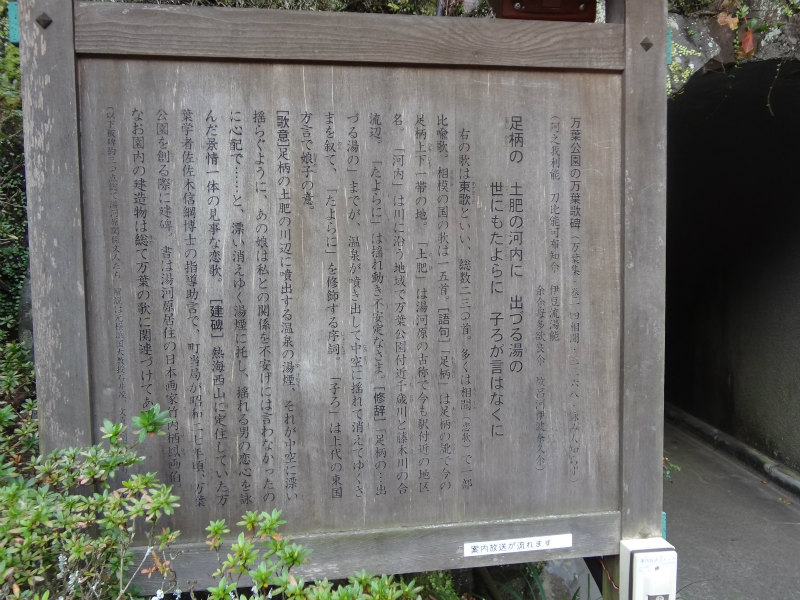 万葉公園の万葉歌碑（万葉集・巻一四相聞・三三六八 詠み人知らず）
（阿之我利能 刀比能可布知尓 伊豆流湯能
余尓母多欲良尓 故呂河伊波奈久尓）
足柄の 土肥の河内に 出づる湯の
世にもたよらに 子ろが言はなくに
右の歌は東歌といい、総数二三〇首。多くは相聞（恋歌）で一部
比喩歌。相模の国の歌は一五首。［語句］「足柄」は足柄の訛で今の
足柄上下一帯の地。「土肥」は湯河原の古称で今も駅付近の地区
名。「河内」は川に沿う地域で万葉公園付近千歳川と藤木川の合
流辺。「たよらに」は揺れ動き不安定なさま。［修辞］「足柄の…出
づる湯の」までが、温泉が噴き出して中空に揺れて消えてゆくさ
まを叙て、「たよらに」を修飾する序詞。「子ろ」は上代の東国
方言で娘子の意。
［歌意］足柄の土肥の川辺に噴出する温泉の湯煙、それが中空に漂い
揺らぐように、あの娘は私との関係を不安げには言わなかったの
に心配で……と、漂い消えゆく湯煙に托し、揺れる男の恋心を詠
んだ景情一体の見事な恋歌。［建碑］熱海西山に定住していた万
葉学者佐佐木信綱博士の指導助言で、町当局が昭和二七年頃、万葉
公園を創る際に建碑 書は湯河原居住の日本画家竹内栖鳳画伯
なお園内の建造物は総て万葉の歌に関連づけてあ
案内放送が流れます